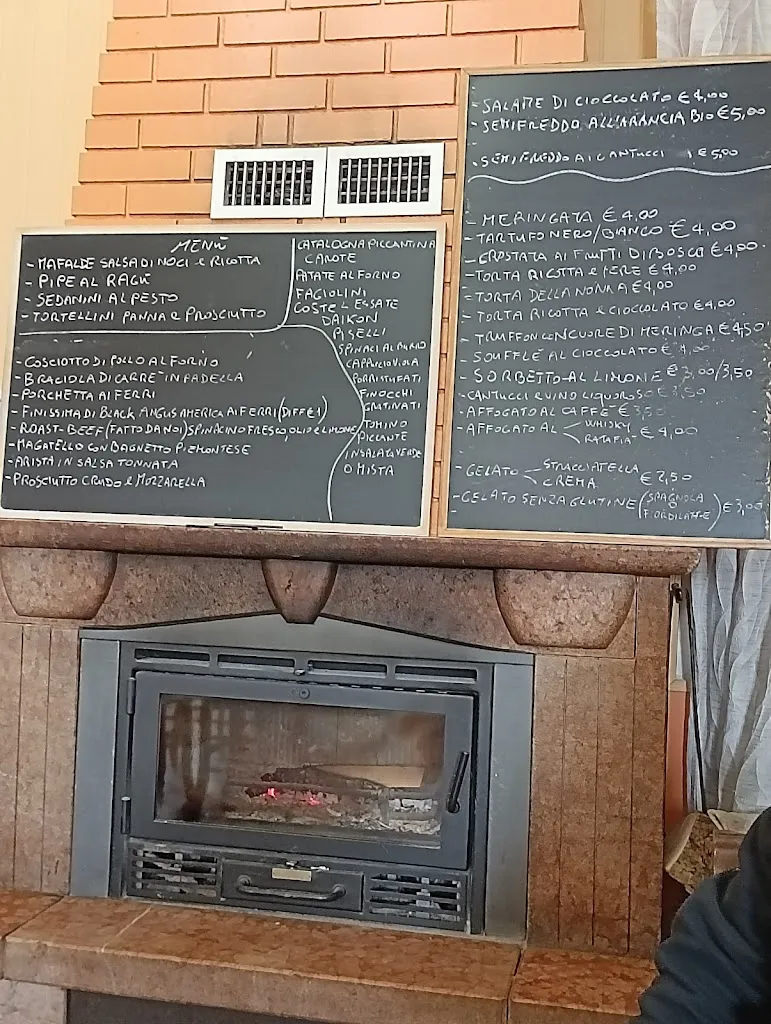 MENÙ
- MAFALDE SALSA DI NOCI e RICOTTA
- PIPE AL RAGÙ
- SEDANINI AL PESTO
- TORTELLINI PANNA e PROSCIUTTO
- COSCIOTTO DI POLLO AL FORNO
- BRACIOLA DI CARRE' IN PADELLA
- PORCHETTA AI FERRI
- FINISSIMA DI BLACK ANGUS AMERICA AI FERRI (DIFF €1)
- ROAST-BEEF (FATTO DA NOI) SPINACINO FRESCO, OLIO e LIMONE
- MAGATELLO CON BAGNETTO PIEMONTESE
- ARISTA IN SALSA TONNATA
- PROSCIUTTO CRUDO e MOZZARELLA
CATALOGNA PICCANTINA
CAROTE
PATATE AL FORNO
FAGIOLINI
COSTE LESSATE
DAIKON
PISELLI
SPINACI AL BURRO
CAPPUCCIO VIOLA
PORRI STUFATI
FINOCCHI
GRATINATI
TOMINO
PICCANTE
INSALATA VERDE
O MISTA
- SALAME DI CIOCCOLATO € 4,00
- SEMIFREDDO ALL'ARANCIA BIO € 5,00
- SEMIFREDDO AI CANTUCCI € 5,00
- MERINGATA € 4,00
- TARTUFO NERO/BIANCO € 4,00
- CROSTATA AI FRUTTI DI BOSCO € 4,00
- TORTA RICOTTA e PERE € 4,00
- TORTA DELLA NONNA € 4,00
- TORTA RICOTTA e CIOCCOLATO € 4,00
- TRUFFON CON CUORE DI MERINGA € 4,50
- SOUFFLÈ AL CIOCCOLATO € 4,00
- SORBETTO AL LIMONE € 3,00/3,50
- CANTUCCI e VINO LIQUOROSO € 3,50
- AFFOGATO AL CAFFÈ € 3,50
- AFFOGATO AL WHISKY RATAFIÀ € 4,00
- GELATO STRACCIATELLA CREMA € 2,50
- GELATO SENZA GLUTINE (SPAGNOLA O FIORDILATTE) € 3,00